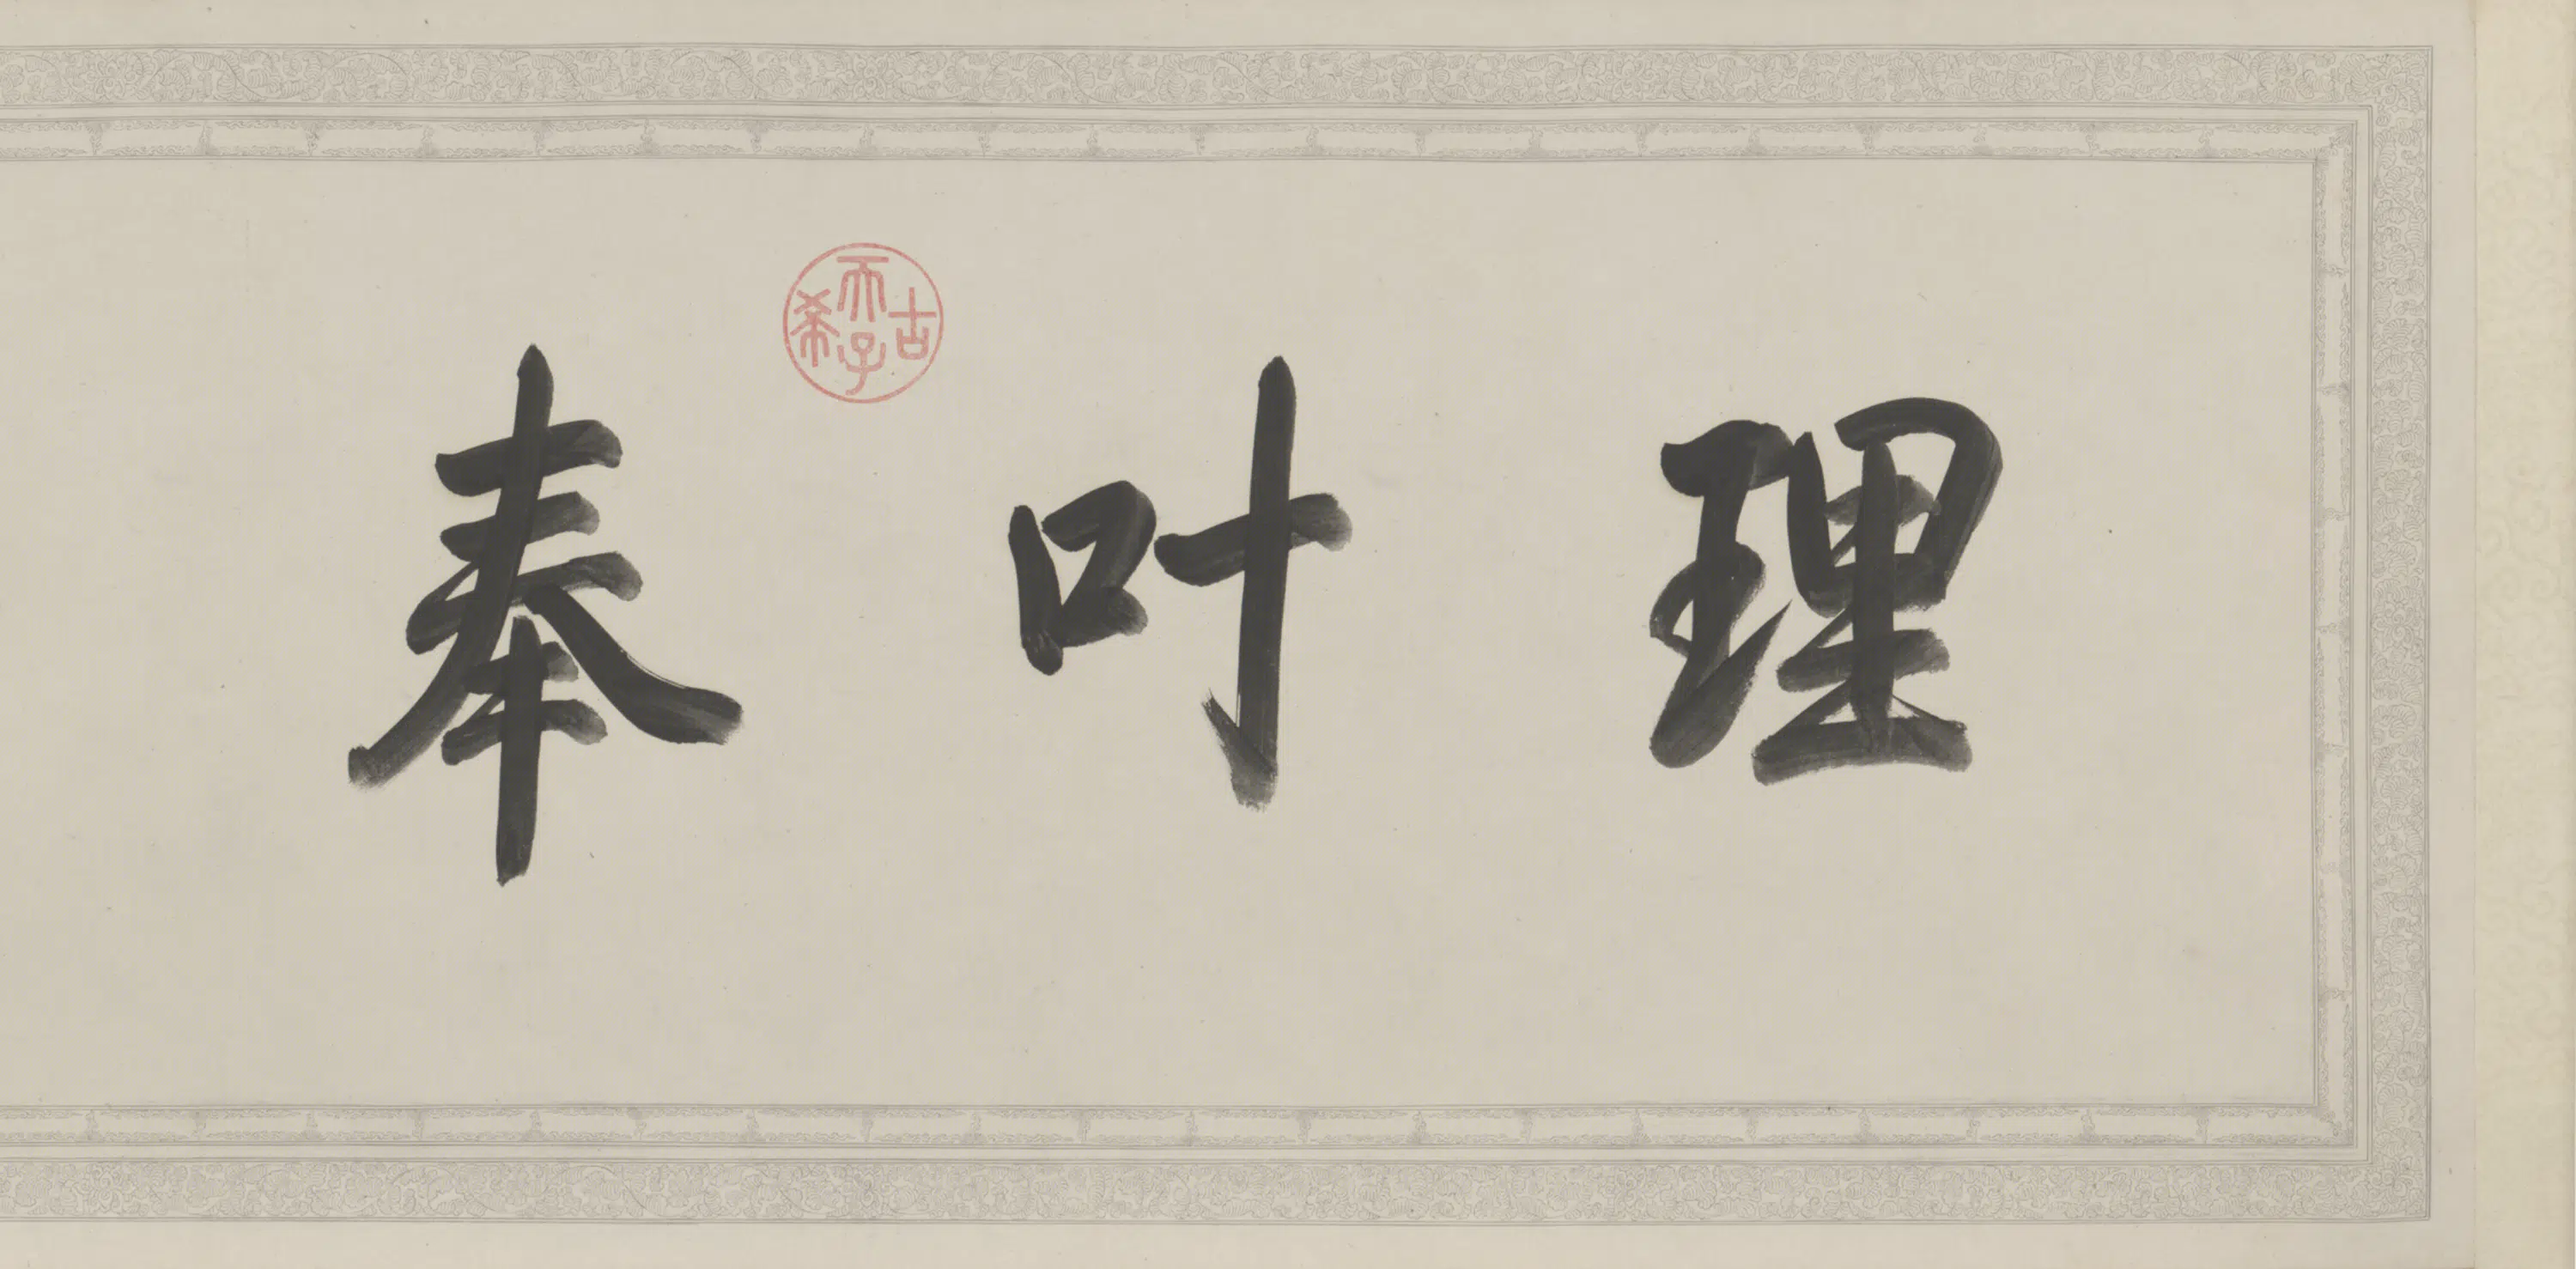 理叶奉
古希天子